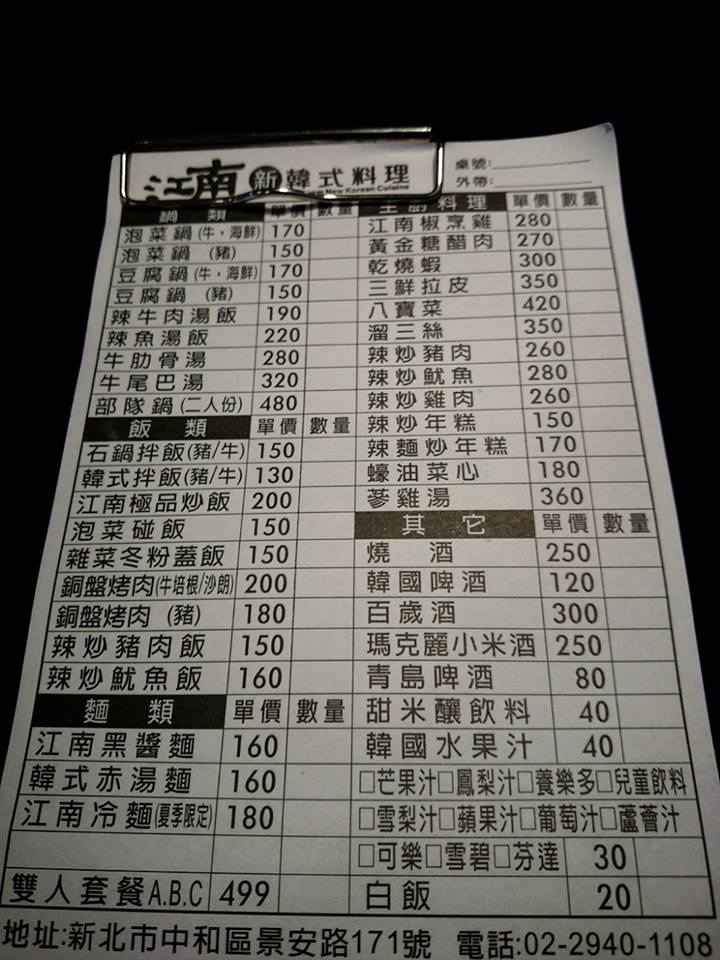 江南 新 韓式料理
New Korean Cuisine
桌號:
外帶:
鍋類 單價 數量
泡菜鍋(牛,海鮮) 170
泡菜鍋 (豬) 150
豆腐鍋(牛,海鮮) 170
豆腐鍋 (豬) 150
辣牛肉湯飯 190
辣魚湯飯 220
牛肋骨湯 280
牛尾巴湯 320
部隊鍋(二人份) 480
飯類 單價 數量
石鍋拌飯(豬/牛) 150
韓式拌飯(豬/牛) 130
江南極品炒飯 200
泡菜碰飯 150
雜菜冬粉蓋飯 150
銅盤烤肉(牛培根/沙朗) 200
銅盤烤肉 (豬) 180
辣炒豬肉飯 150
辣炒魷魚飯 160
麵類 單價 數量
江南黑醬麵 160
韓式赤湯麵 160
江南冷麵(夏季限定) 180
雙人套餐A.B.C 499
主廚料理 單價 數量
江南椒烹雞 280
黃金糖醋肉 270
乾燒蝦 300
三鮮拉皮 350
八寶菜 420
溜三絲 350
辣炒豬肉 260
辣炒魷魚 280
辣炒雞肉 260
辣炒年糕 150
辣麵炒年糕 170
蠔油菜心 180
蔘雞湯 360
其它 單價 數量
燒酒 250
韓國啤酒 120
百歲酒 300
瑪克麗小米酒 250
青島啤酒 80
甜米釀飲料 40
韓國水果汁 40
□芒果汁□鳳梨汁□養樂多□兒童飲料
□雪梨汁□蘋果汁□葡萄汁□蘆薈汁
□可樂□雪碧□芬達 30
白飯 20
地址:新北市中和區景安路171號 電話:02-2940-1108